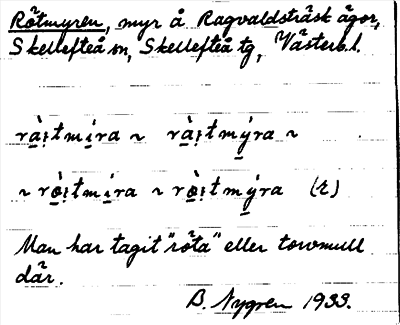 Rötmyren, myr å Ragvaldsträsk ägor,
Skellefteå sn, Skellefteå tg, Västerb. l.
rà̱ːtmi̱ra ~ rà̱ːtmý̱ra ~
~ rò̱ːtmi̱ra ~ rò̱ːtmý̱ra (ɛ)
Man har tagit "röta" eller torvmull
där.
B. Nygren 1933.